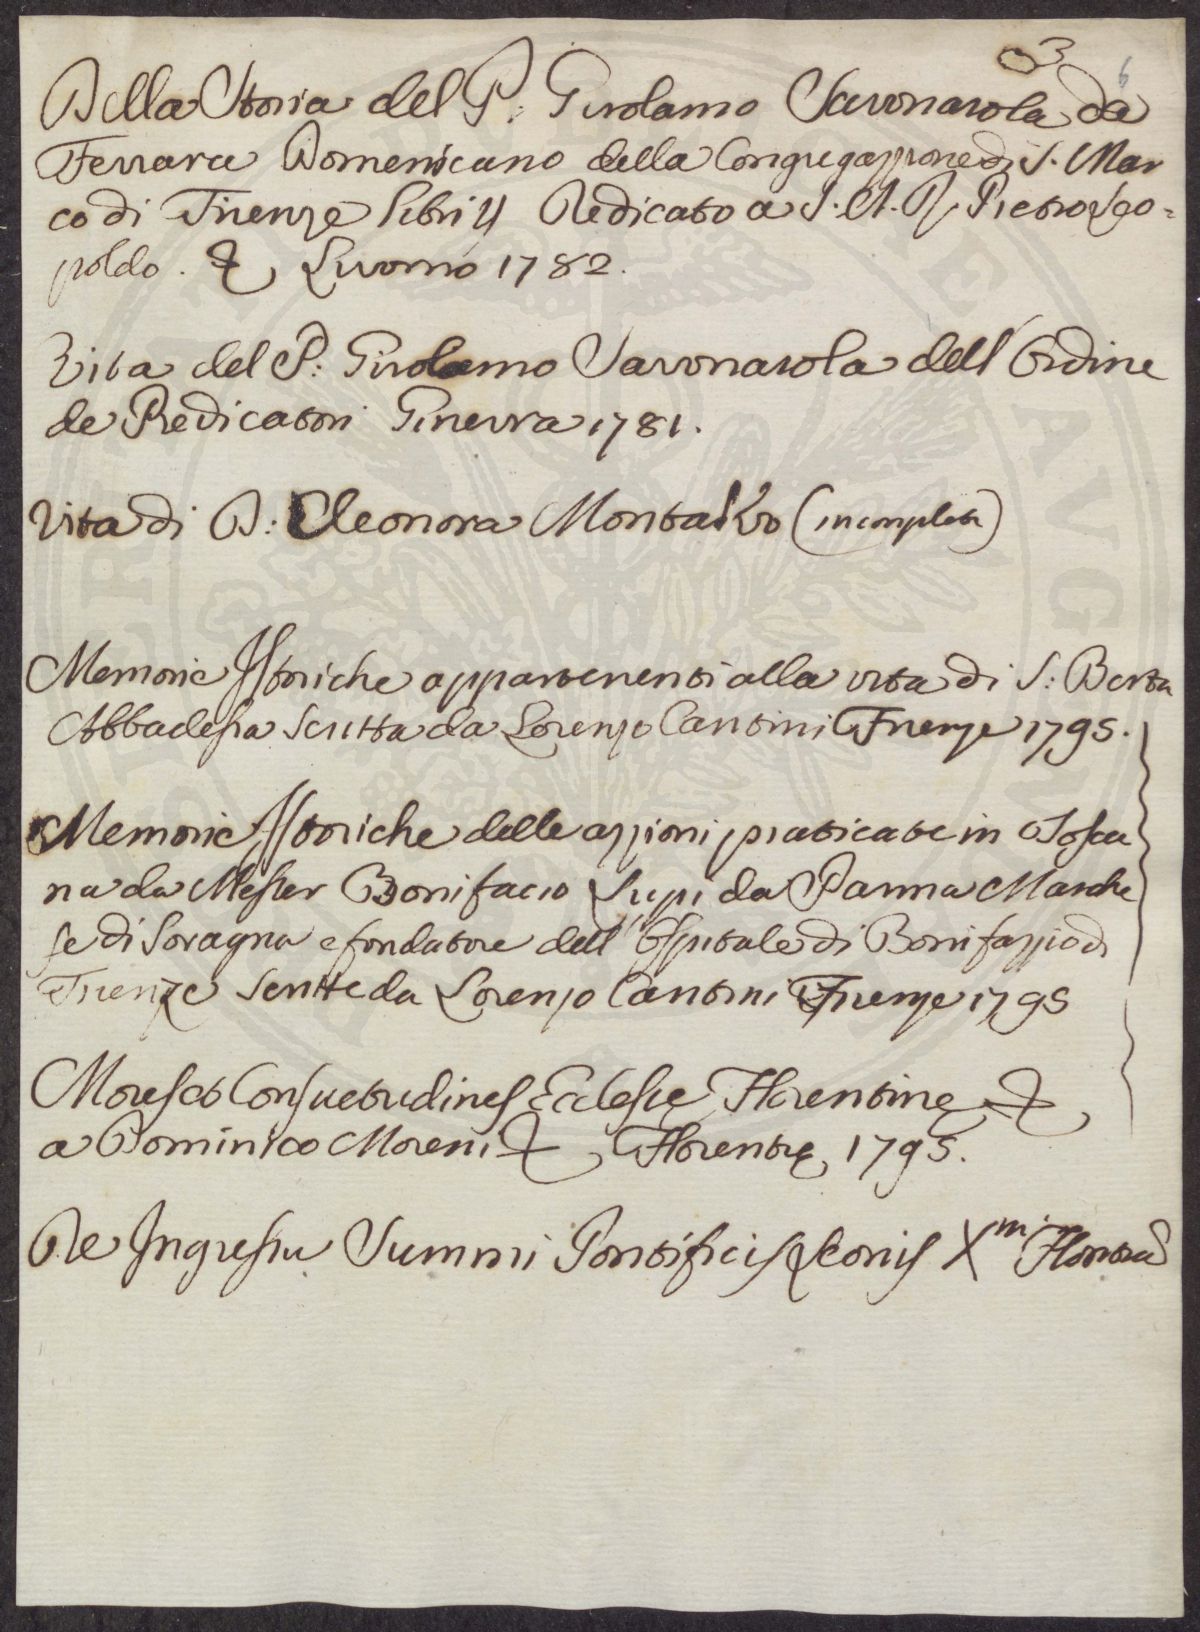 3 6
Della Storia del P: Girolamo Savonarola da
Ferrara Domenicano della Congregazzione di S. Mar
co di Firenze Libri 4 Dedicato a S. A. R. Pietro Leo=
poldo. & Livorno 1782.
Vita del P: Girolamo Savonarola dell' Ordine
de Predicatori Ginevra 1781.
Vita di D: Eleonora Montalvo (incompleta)
Memorie Istoriche appartenenti alla vita di S: Berta
Abbadessa scritta da Lorenzo Cantini Firenze 1795.
Memorie Istoriche delle azzioni praticate in Tosca
na da Messer Bonifacio Lupi da Parma Marche
se di Soragna e fondatore dell' Ospitale di Bonifazzio di
Firenze scritte da Lorenzo Cantini Firenze 1795
Mores et Consuetudines Eclesie Florentine &
a Dominico Moreni & Florentie 1795.
De Ingressu Summi Pontificis Leonis X.m Florentia